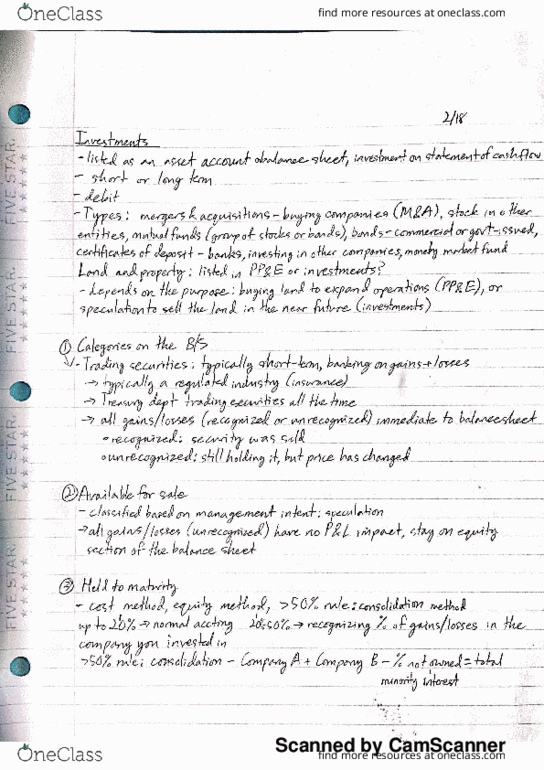 OneClass
find more resources at oneclass.com
2/18
Investments
- listed as an asset account o balance sheet, investment on statement of cash flow
- short or long term
- debit
- Types: mergers & acquisitions - buying companies (M&A), stock in other
entities, mutual funds (group of stocks or bonds), bonds - commercial or govt-issued,
certificates of deposit - banks, investing in other companies, money market fund
Land and property: listed in PP&E or investments?
- depends on the purpose: buying land to expand operations (PP&E), or
speculation to sell the land in the near future (investments)
① Categories on the B/S
- Trading securities: typically short-term, banking on gains + losses
→ typically a regulated industry (insurance)
→ Treasury dept trading securities all the time
→ all gains/losses (recognized or unrecognized) immediate to balance sheet
• recognized: security was sold
• unrecognized: still holding it, but price has changed
② Available for sale
- classified based on management intent: speculation
→ all gains/losses (unrecognized) have no P&L impact, stay on equity
section of the balance sheet
③ Held to maturity
- cost method, equity method, >50% rule: consolidation method
up to 20% → normal accting 20-50% → recognizing % of gains/losses in the
company you invested in
>50% rule: consolidation - Company A + Company B - % not owned = total
minority interest
FIVE STAR.
FIVE STAR.
FIVE STAR.
FIVE STAR.
Scanned by CamScanner
OneClass
find more resources at oneclass.com